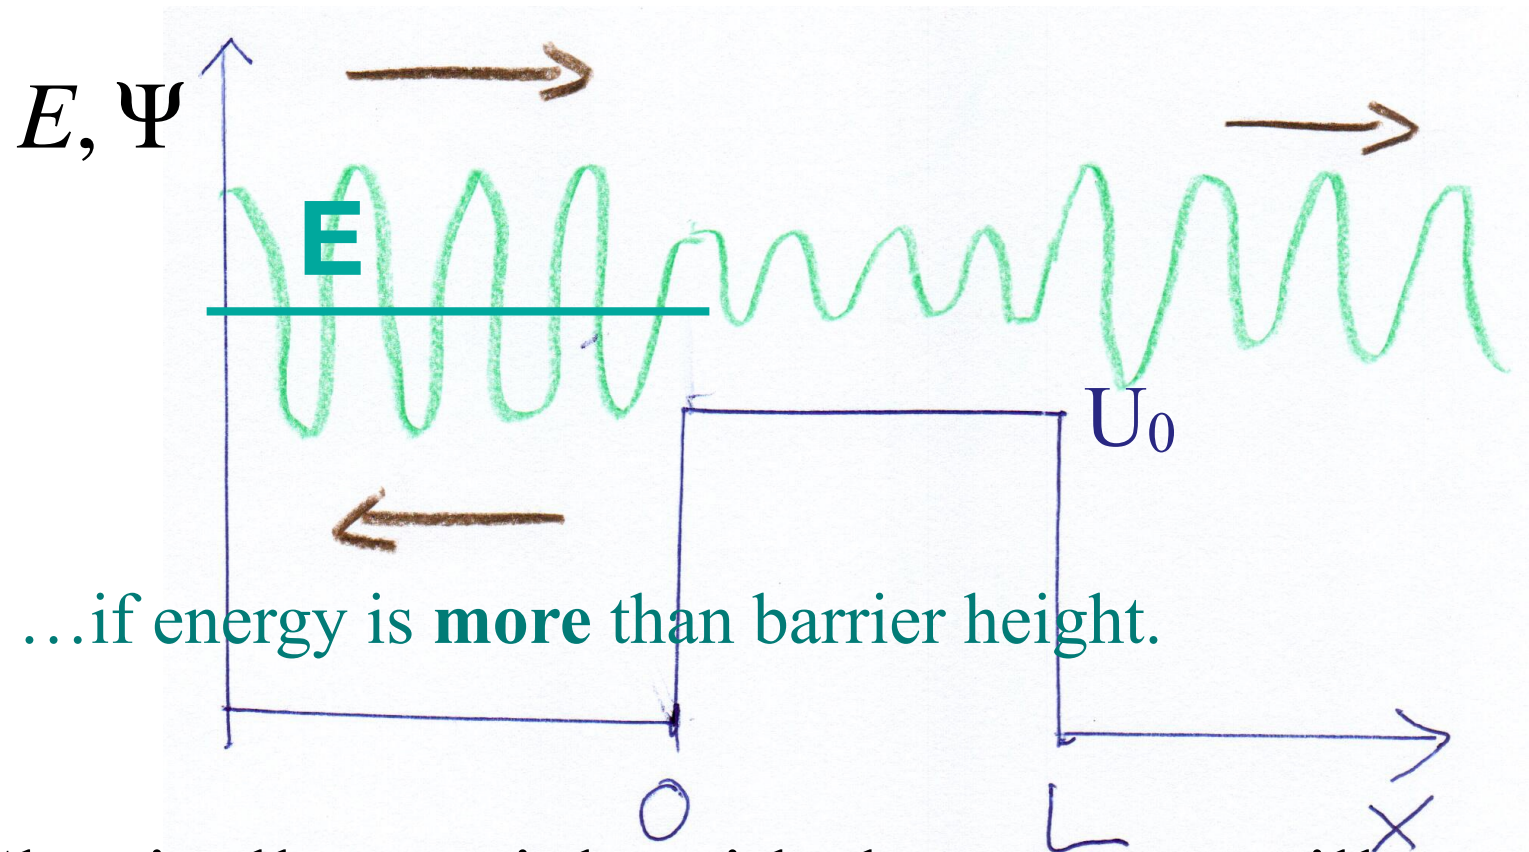 E, Ψ
E
U₀
…if energy is more than barrier height.
0 L x